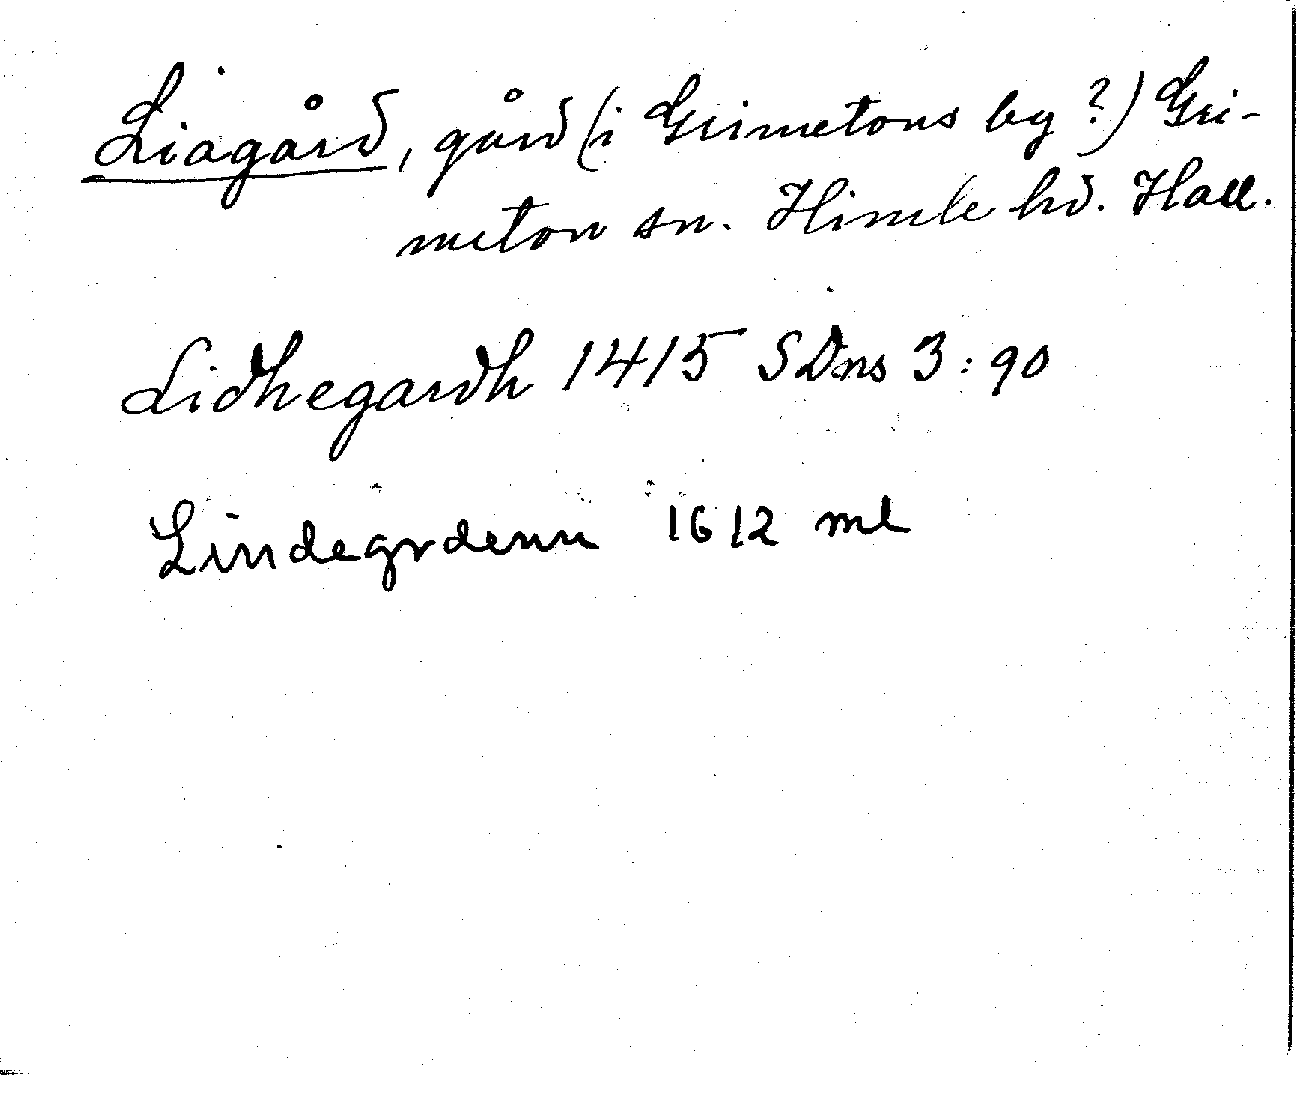 Liagård, gård (i Grimetons by?) Gri-
meton sn. Himle hd. Hall.
Lidhegardh 1415 SDns 3:90
Lindegrdenn 1612 ml